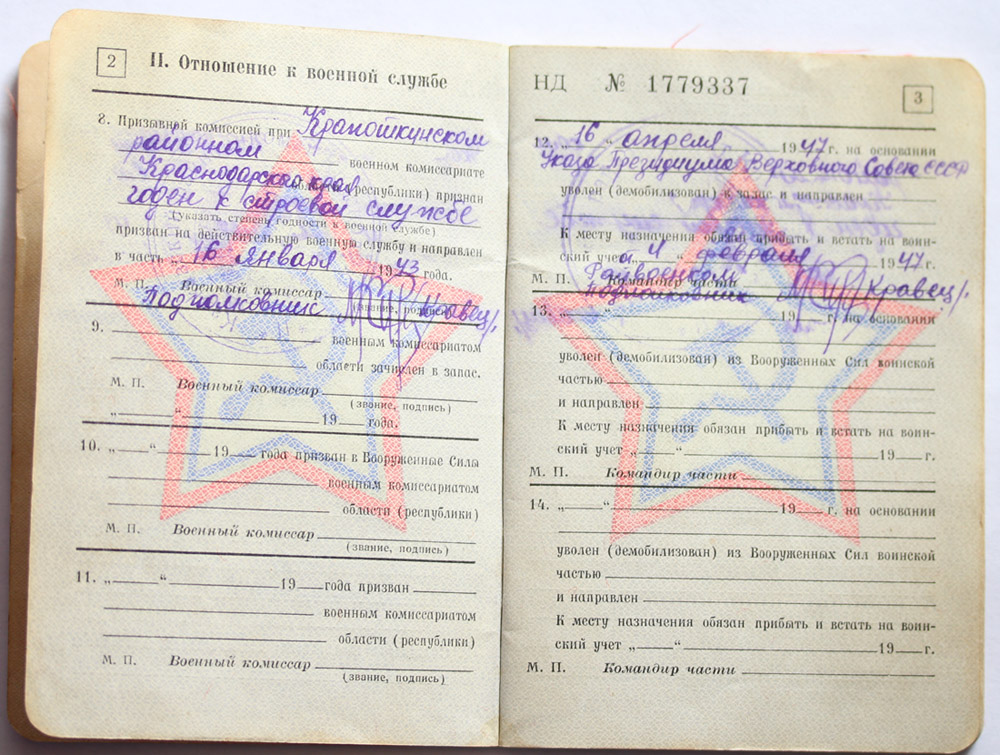 2
II. Отношение к военной службе
8. Призывной комиссией при Кропоткинском
районном военном комиссариате
Краснодарского края области (республики) признан
годен к строевой службе
(указать степень годности к военной службе)
призван на действительную военную службу и направлен
в часть „16 января 1943 года.
М. П. Военный комиссар
Подполковник Кравец/
(звание, подпись)
9.
военным комиссариатом
области зачислен в запас.
М. П. Военный комиссар
(звание, подпись)
„ “ 19 года.
10. „ “ 19 года призван в Вооруженные Силы
военным комиссариатом
области (республики)
М. П. Военный комиссар
(звание, подпись)
11. „ “ 19 года призван
военным комиссариатом
области (республики)
М. П. Военный комиссар
(звание, подпись)
НД № 1779337
3
12. „16“ апреля 1947 г. на основании
Указа Президиума Верховного Совета СССР
уволен (демобилизован) в запас и направлен
К месту назначения обязан прибыть и встать на воин-
ский учет „4“ февраля 1947 г.
М. П. Командир части
Райвоенком
подполковник Кравец/.
13. „ “ 19 г. на основании
уволен (демобилизован) из Вооруженных Сил воинской
частью
и направлен
К месту назначения обязан прибыть и встать на воин-
ский учет „ “ 19 г.
М. П. Командир части
14. „ “ 19 г. на основании
уволен (демобилизован) из Вооруженных Сил воинской
частью
и направлен
К месту назначения обязан прибыть и встать на воин-
ский учет „ “ 19 г.
М. П. Командир части